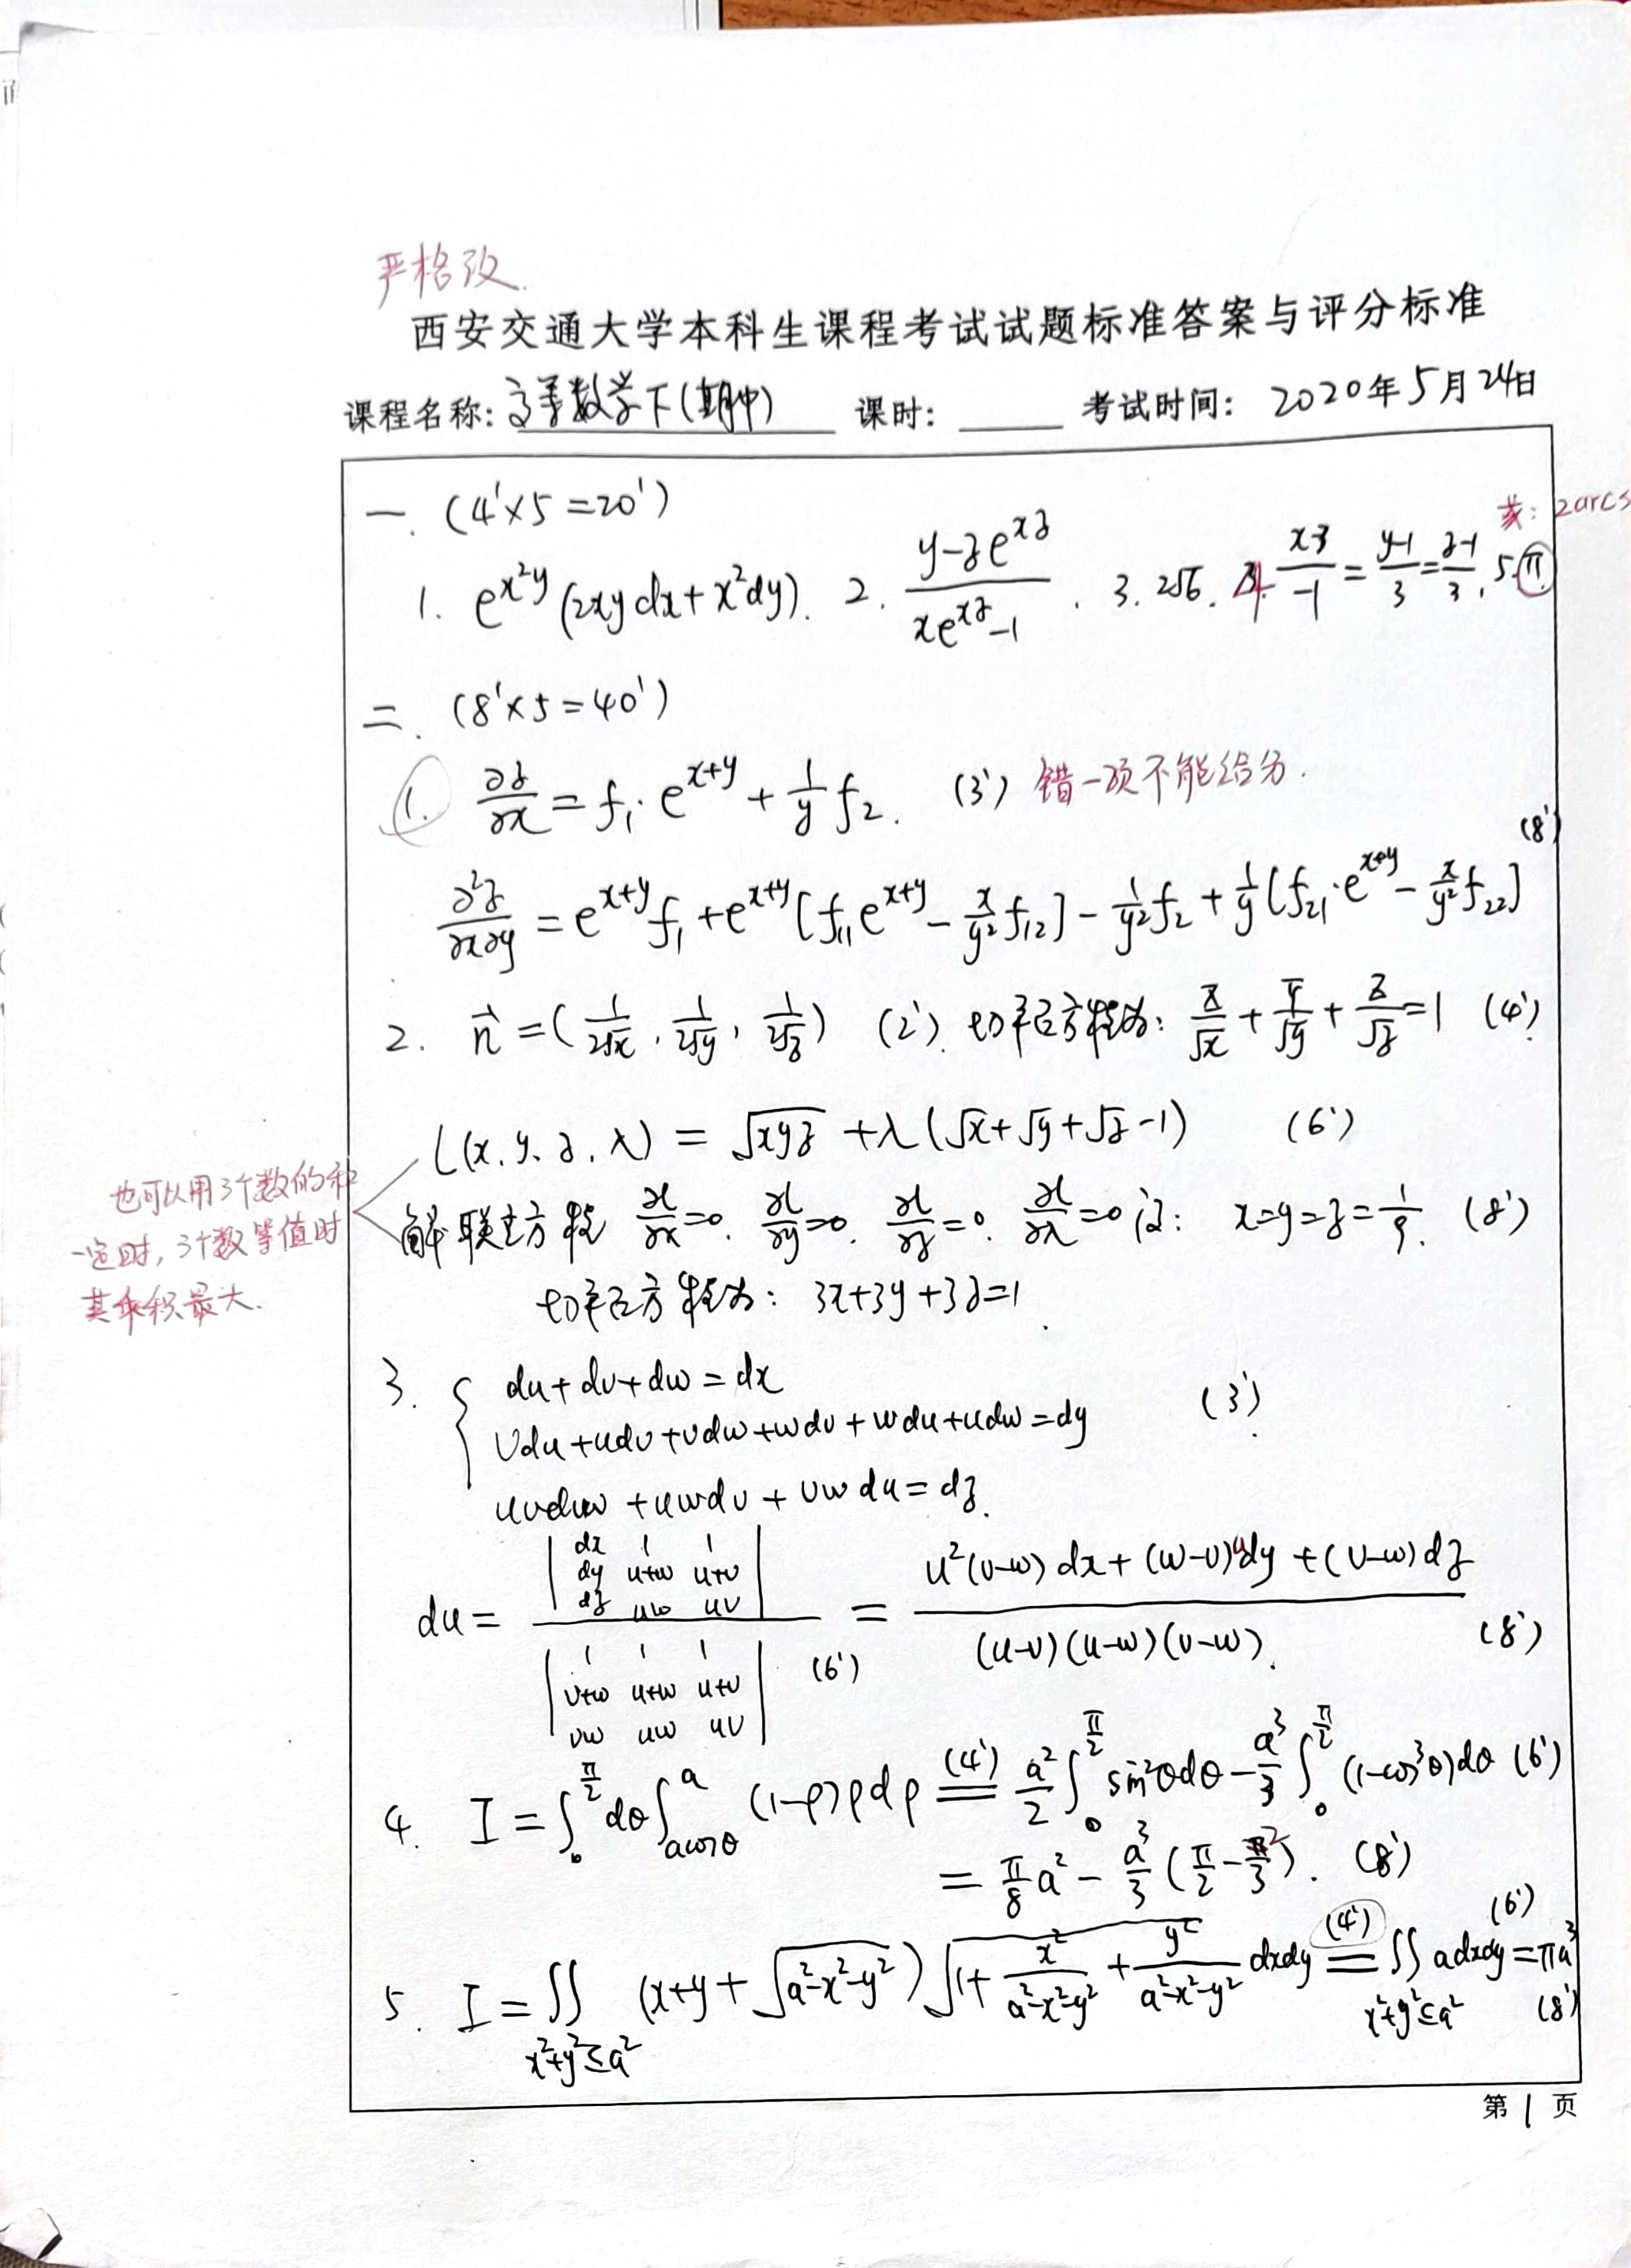 严格改.
西安交通大学本科生课程考试试题标准答案与评分标准
课程名称: 高等数学下(期中) 课时: ____ 考试时间: 2020年5月24日
一. (4'×5=20')
1. e^{x²y}(2xydx+x²dy). 2. \frac{y-ze^{xz}}{xe^{xz}-1}. 3. 2√6. 4. \frac{x-3}{-1}=\frac{y-1}{3}=\frac{z-1}{3}. 5. π
或: 2arcs
二. (8'×5=40')
1. \frac{∂z}{∂x}=f₁·e^{x+y}+\frac{1}{y}f₂. (3') 错一项不能给分.
\frac{∂²z}{∂x∂y}=e^{x+y}f₁+e^{x+y}[f₁₁e^{x+y}-\frac{x}{y²}f₁₂]-\frac{1}{y²}f₂+\frac{1}{y}[f₂₁·e^{x+y}-\frac{x}{y²}f₂₂] (8')
2. \vec{n}=(\frac{1}{2√x}, \frac{1}{2√y}, \frac{1}{2√z}) (2'). 切平面方程为: \frac{X}{√x}+\frac{Y}{√y}+\frac{Z}{√z}=1 (4')
L(x.y.z.λ)=\sqrt{xyz}+λ(√x+√y+√z-1) (6')
解联立方程 \frac{∂L}{∂x}=0. \frac{∂L}{∂y}=0. \frac{∂L}{∂z}=0. \frac{∂L}{∂λ}=0 得: x=y=z=\frac{1}{9}. (8')
切平面方程为: 3x+3y+3z=1.
也可以用3个数的和
一定时, 3个数等值时
其乘积最大.
3. { du+dv+dw=dx
vdu+udv+vdw+wdv+wdu+udw=dy (3')
uvdw+uwdv+vwdu=dz.
du=\frac{\begin{vmatrix} dx & 1 & 1 \\ dy & u+w & u+v \\ dz & uw & uv \end{vmatrix}}{\begin{vmatrix} 1 & 1 & 1 \\ v+w & u+w & u+v \\ vw & uw & uv \end{vmatrix}} (6') =\frac{u²(v-w)dx+(w-v)udy+(v-w)dz}{(u-v)(u-w)(v-w)}. (8')
4. I=∫_0^{\frac{π}{2}}dθ∫_{acosθ}^{a}(1-ρ)ρdρ \overset{(4')}{=} \frac{a²}{2}∫_0^{\frac{π}{2}}sin²θdθ-\frac{a³}{3}∫_0^{\frac{π}{2}}(1-cos³θ)dθ (6')
=\frac{π}{8}a²-\frac{a³}{3}(\frac{π}{2}-\frac{2}{3}). (8')
5. I=∬_{x²+y²≤a²}(x+y+\sqrt{a²-x²-y²})\sqrt{1+\frac{x²}{a²-x²-y²}+\frac{y²}{a²-x²-y²}}dxdy \overset{(4')}{=} ∬_{x²+y²≤a²}adxdy (6') =πa³ (8')
第 1 页